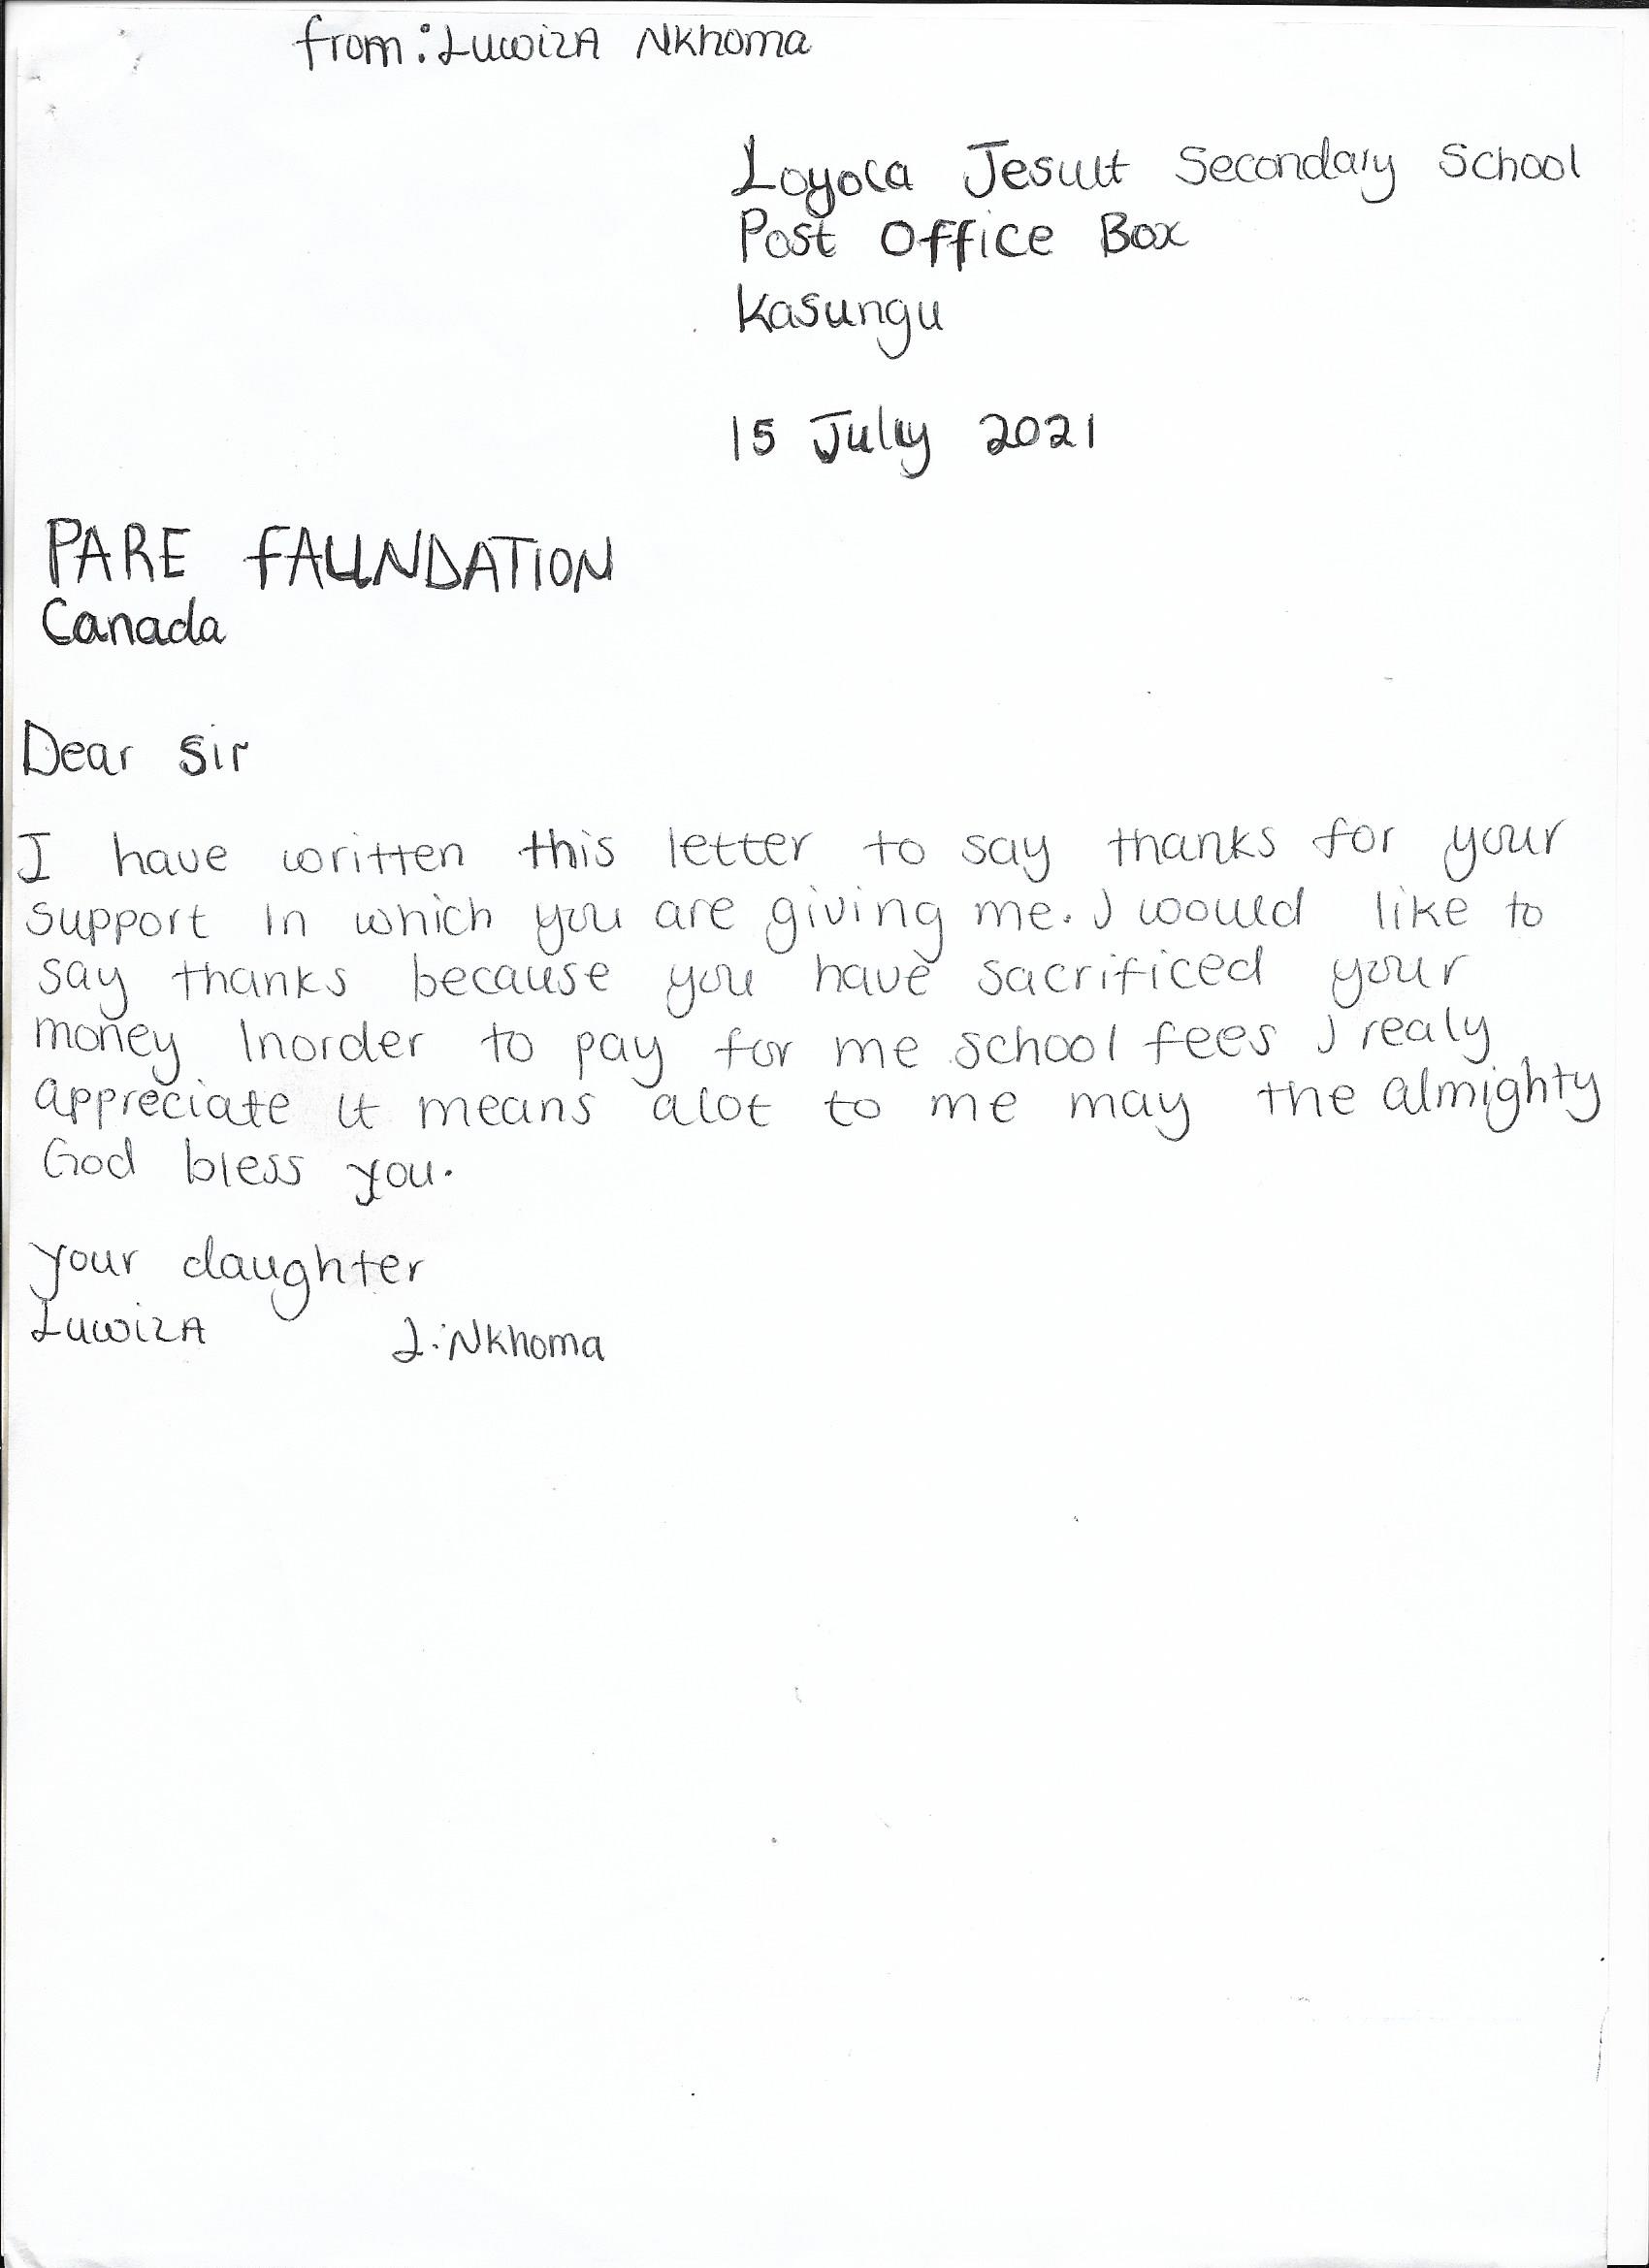 from: LuwizA Nkhoma
Loyola Jesuit Secondary School
Post Office Box
Kasungu
15 July 2021
PARE FAUNDATION
Canada
Dear Sir
I have written this letter to say thanks for your
support in which you are giving me. I woould like to
say thanks because you have sacrificed your
money Inorder to pay for me school fees I realy
appreciate it means alot to me may the almighty
God bless you.
your daughter
LuwizA L. Nkhoma